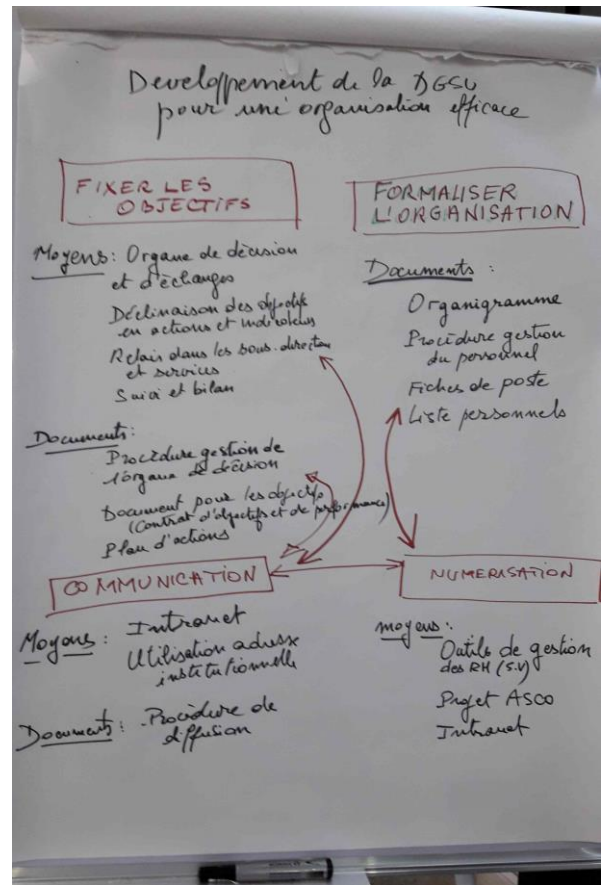 Developpement de la DGSU
pour une organisation efficace
FIXER LES
OBJECTIFS
Moyens : Organe de décision
et d'échanges
Déclinaison des objectifs
en actions et indicateurs
Relais dans les sous-direction
et services
Suivi et bilan
Documents :
Procédure gestion de
l'organe de décision
Document pour les objectifs
(Contrat d'objectifs et de performance)
Plan d'actions
FORMALISER
L'ORGANISATION
Documents :
Organigramme
Procédure gestion
du personnel
Fiches de poste
Liste personnels
COMMUNICATION
Moyens : Intranet
Utilisation adresse
institutionnelle
Documents : Procédure de
diffusion
NUMERISATION
moyens :
Outils de gestion
des RH (S.V)
Projet ASCO
Intranet